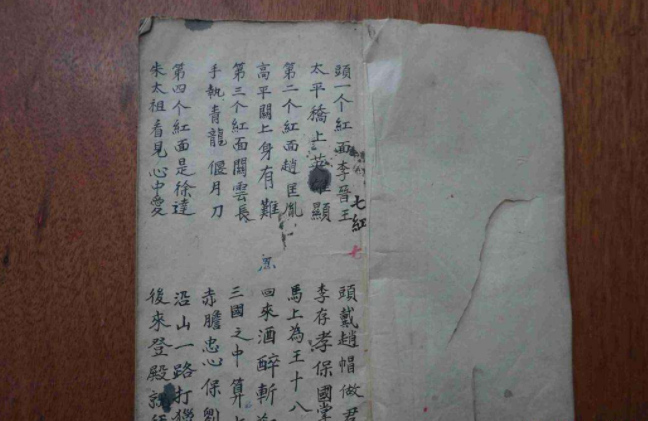 七紅
七
頭一个紅面李晉王 頭戴趙帽做君
太平橋上英雄顯 李存孝保國掌
第二个紅面趙匡胤 馬上為王十八
高平關上身有難 回來酒醉斬
第三个紅面關雲長 三國之中算
手執青龍偃月刀 赤膽忠心保劉
第四个紅面是徐達 沿山一路打獵
朱太祖看見心中愛 後來登殿